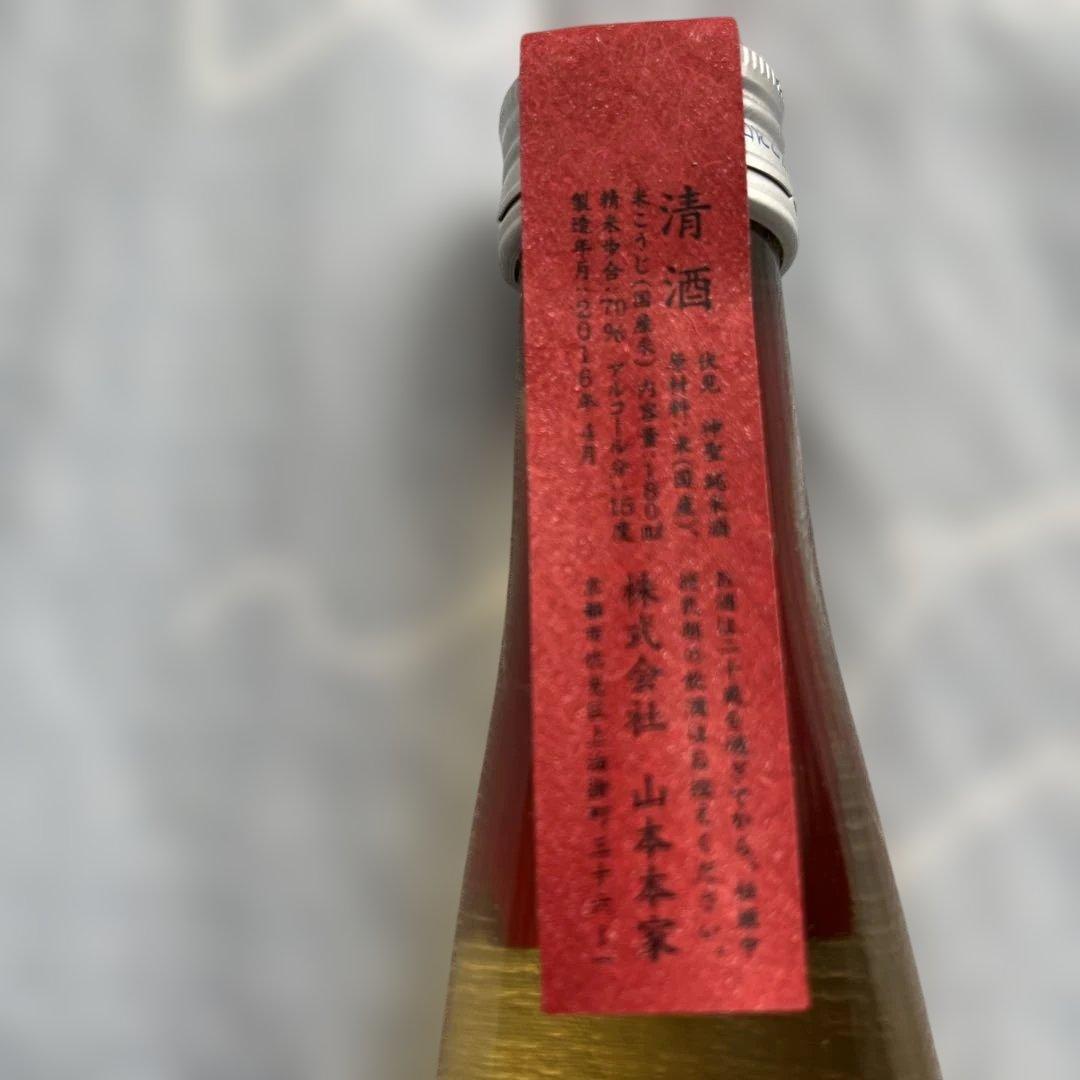 清酒
伏見 神聖 純米酒
原材料:米(国産)、
米こうじ(国産米) 内容量:180㎖
精米歩合:70% アルコール分:15度
製造年月:2016年 4月
お酒は二十歳を過ぎてから。妊娠中
授乳期の飲酒はお控えください。
株式会社 山本本家
京都市伏見区上油掛町三十六ノ一